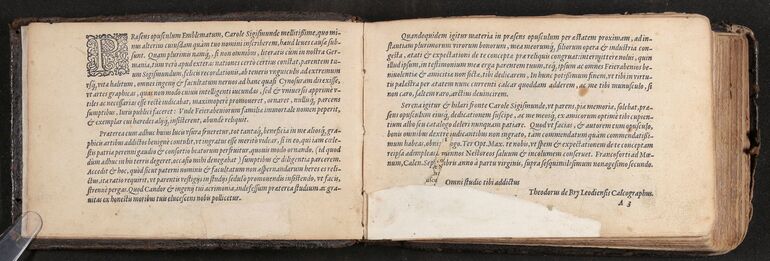 PRæsens opusculum Emblematum, Carole Sigismunde mellitissime, quo mi-
nus alterius cuiusdam quàm tuo nomini inscriberem, haud leues causæ sub-
sunt. Quàm plurimis namq́;, si non omnibus, literatis cùm in nostra Ger-
mania, tum verò apud exteras nationes certò certius constat, parentem tu-
um Sigismundum felicis recordationis, ab teneris vnguiculis ad extremum
vsq́; vitæ halitum, omnes ingenij & facultatum neruos ad hanc quasi Cynosuram direxisse,
vt artes graphicas, quàm non modo cuiuis intelligenti iucundas, sed & vniuersis apprimè v-
tiles ac necessarias esse rectè iudicabat, maximopere promoueret, ornaret, nullisq́; parcens
sumptibus, Iuris publici faceret: Vnde Feirabeniorum familiæ immortale nomen peperit,
& exemplar cui hæredes alijq́; insisterent, abundè reliquit.
Præterea cum adhuc huius lucis vsura frueretur, tot tantaq́; beneficia in me alíosq́; gra-
phicis artibus addictos benignè contulit, vt ingratus esse meritò viderer, si in eo, qui iam cœle-
stis patriæ perenni gaudio & consortio beatorum perfruuntur, quouis modo ornando, (id quod
dum adhuc in his terris degeret, accasio mihi denegabat) sumptibus & diligentia parcerem.
Accedit & hoc, quòd sicut paterni nominis & facultatum non aspernandarum heres es reli-
ctus, ita ratio requirit, vt parentis vestigijs insistens sedulò promouendis insistendo, vt facis,
strennè pergas. Quod Candor & ingenij tui acrimonia, indefessum præterea studium ac gra-
uitas ex honestu moribus tuis elucescens nobis pollicetur.
Quandoquidem igitur materia in præsens opusculum per ætatem proximam, ad in-
stantiam plurimorum virorum bonorum, mea meorumq́;, filiorum opera & industria con-
gesta, ætati & expectationi de te conceptæ præ reliquis congruat: interq́uitter nolui, quin
illud ipsum, in testimonium meæ erga parentem tuum, teq́; ipsum ac omnes Feirabenios be-
neuolentiæ & amicitiæ non fictæ, tibi dedicarem, In hunc potissimum finem, vt tibi in virtu-
tis palæstra per æstatem nunc currenti calcar quoddam adderem, ac me tibi munusculo, si
non caro, saltem raro, arctius deuincirem.
Serena igitur & hilari fronte Carole Sigismunde, vt parens, piæ memoriæ, solebat, præ-
sens opusculum eiusq́; dedicationem suscipe, ac me meosq́; ex amicorum optimè tibi cupien-
tium albo siue catalogo deleri nunquam patiare. Quod vt facias, & autorem tum opusculo,
bonis omnibus dextrè iudicantibus non ingrato, tum commendatum quàm commendatissi-
mum habeas, obnixè rogo. Ter Opt. Max. te nobis, vt spem & expectationem de te conceptam
reipsa adempleas, annos Nestoreos saluum & incolumem conseruet. Francoforti ad Mœ-
num, Calen. Septembris anno à partu virginis, supra sesquimillesimum nonagesimo secundo.
Omni studio tibi addictus
Theodorus de Bry Leodiensis Calcographus.
A 3